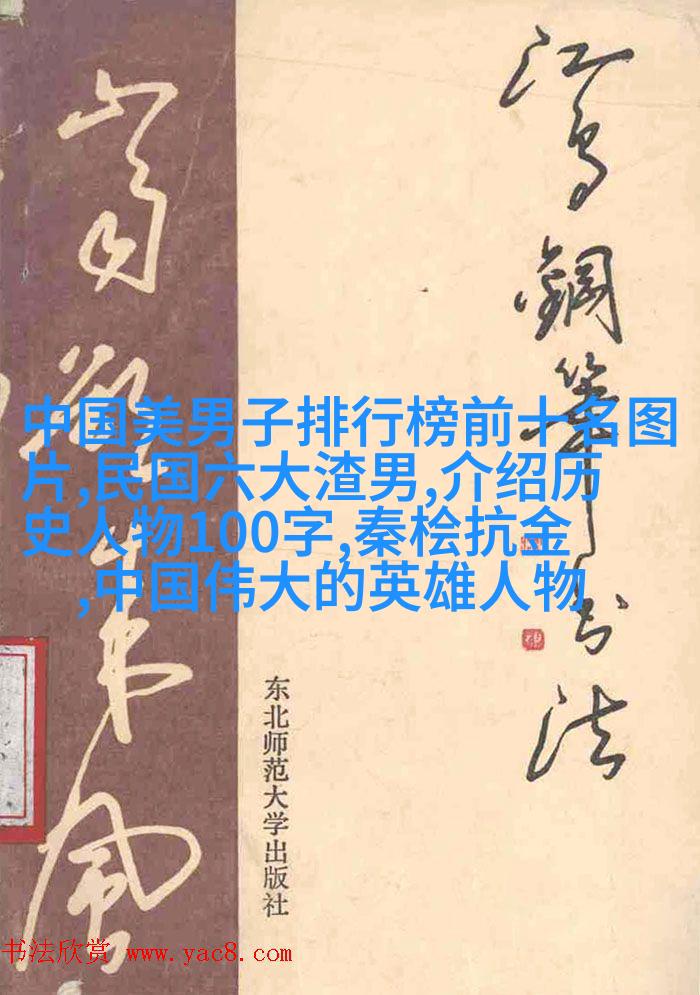 江鸟鋼筆书法
中国美男子排行榜前十名图
片,民国六大渣男,介绍历
史人物100字,秦桧抗金
,中国伟大的英雄人物
东北师范大学出版社
书法欣赏 www.yac8.com